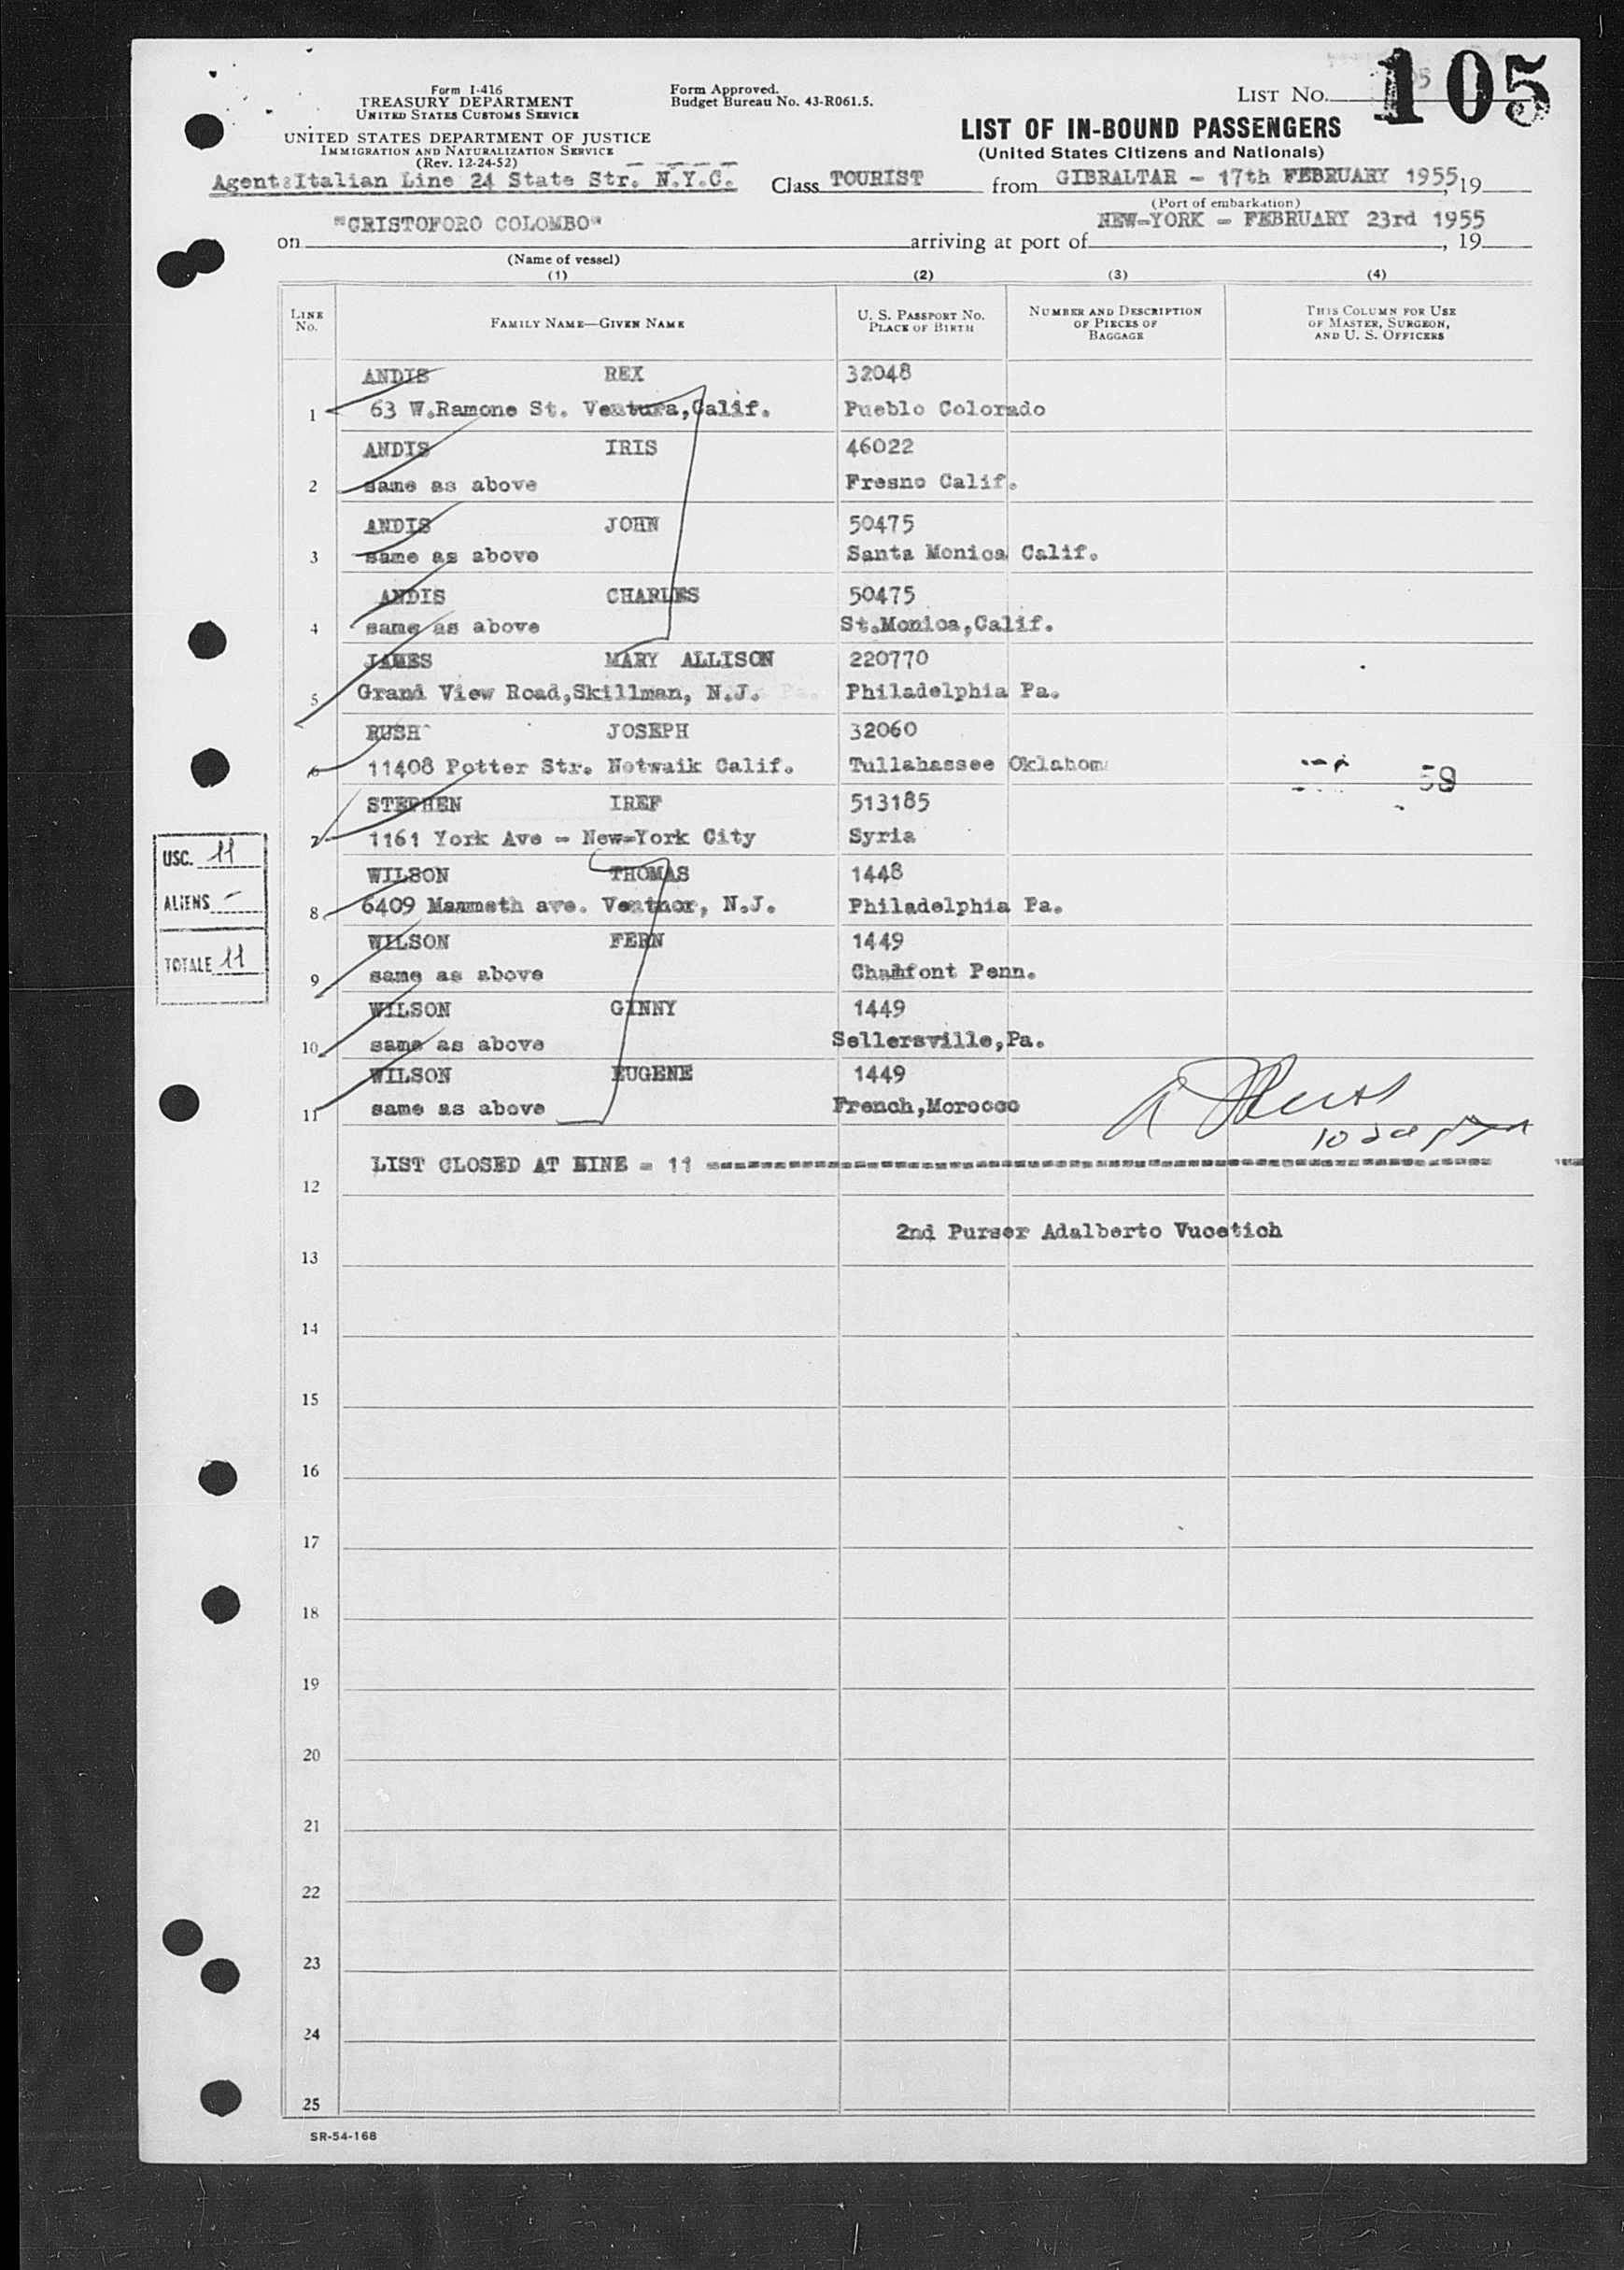 Form I-416
TREASURY DEPARTMENT
UNITED STATES CUSTOMS SERVICE
UNITED STATES DEPARTMENT OF JUSTICE
IMMIGRATION AND NATURALIZATION SERVICE
(Rev. 12-24-52)
Form Approved.
Budget Bureau No. 43-R061.5.
LIST NO. 105
LIST OF IN-BOUND PASSENGERS
(United States Citizens and Nationals)
Agent:Italian Line 24 State Str. N.Y.C. Class TOURIST from GIBRALTAR - 17th FEBRUARY 1955, 19
(Port of embarkation)
on "CRISTOFORO COLOMBO" arriving at port of NEW-YORK - FEBRUARY 23rd 1955, 19
(Name of vessel)
(1) (2) (3) (4)
LINE NO. FAMILY NAME—GIVEN NAME U. S. PASSPORT NO. PLACE OF BIRTH NUMBER AND DESCRIPTION OF PIECES OF BAGGAGE THIS COLUMN FOR USE OF MASTER, SURGEON, AND U. S. OFFICERS
ANDIS REX 32048
1 63 W.Ramone St. Ventura,Calif. Pueblo Colorado
ANDIS IRIS 46022
2 same as above Fresno Calif.
ANDIS JOHN 50475
3 same as above Santa Monica Calif.
ANDIS CHARLES 50475
4 same as above St.Monica,Calif.
JAMES MARY ALLISON 220770
5 Grand View Road,Skillman, N.J. Pa. Philadelphia Pa.
RUSH JOSEPH 32060
6 11408 Potter Str. Notwaik Calif. Tullahassee Oklahom
58
STEPHEN IREF 513185
7 1161 York Ave - New-York City Syria
WILSON THOMAS 1448
8 6409 Mammoth ave. Ventnor, N.J. Philadelphia Pa.
WILSON FERN 1449
9 same as above Chalfont Penn.
WILSON GINNY 1449
10 same as above Sellersville,Pa.
WILSON EUGENE 1449
11 same as above French,Morocco
LIST CLOSED AT LINE = 11
12
2nd Purser Adalberto Vucetich
13
14
15
16
17
18
19
20
21
22
23
24
25
SR-54-168
USC. 11
ALIENS -
TOTALE 11